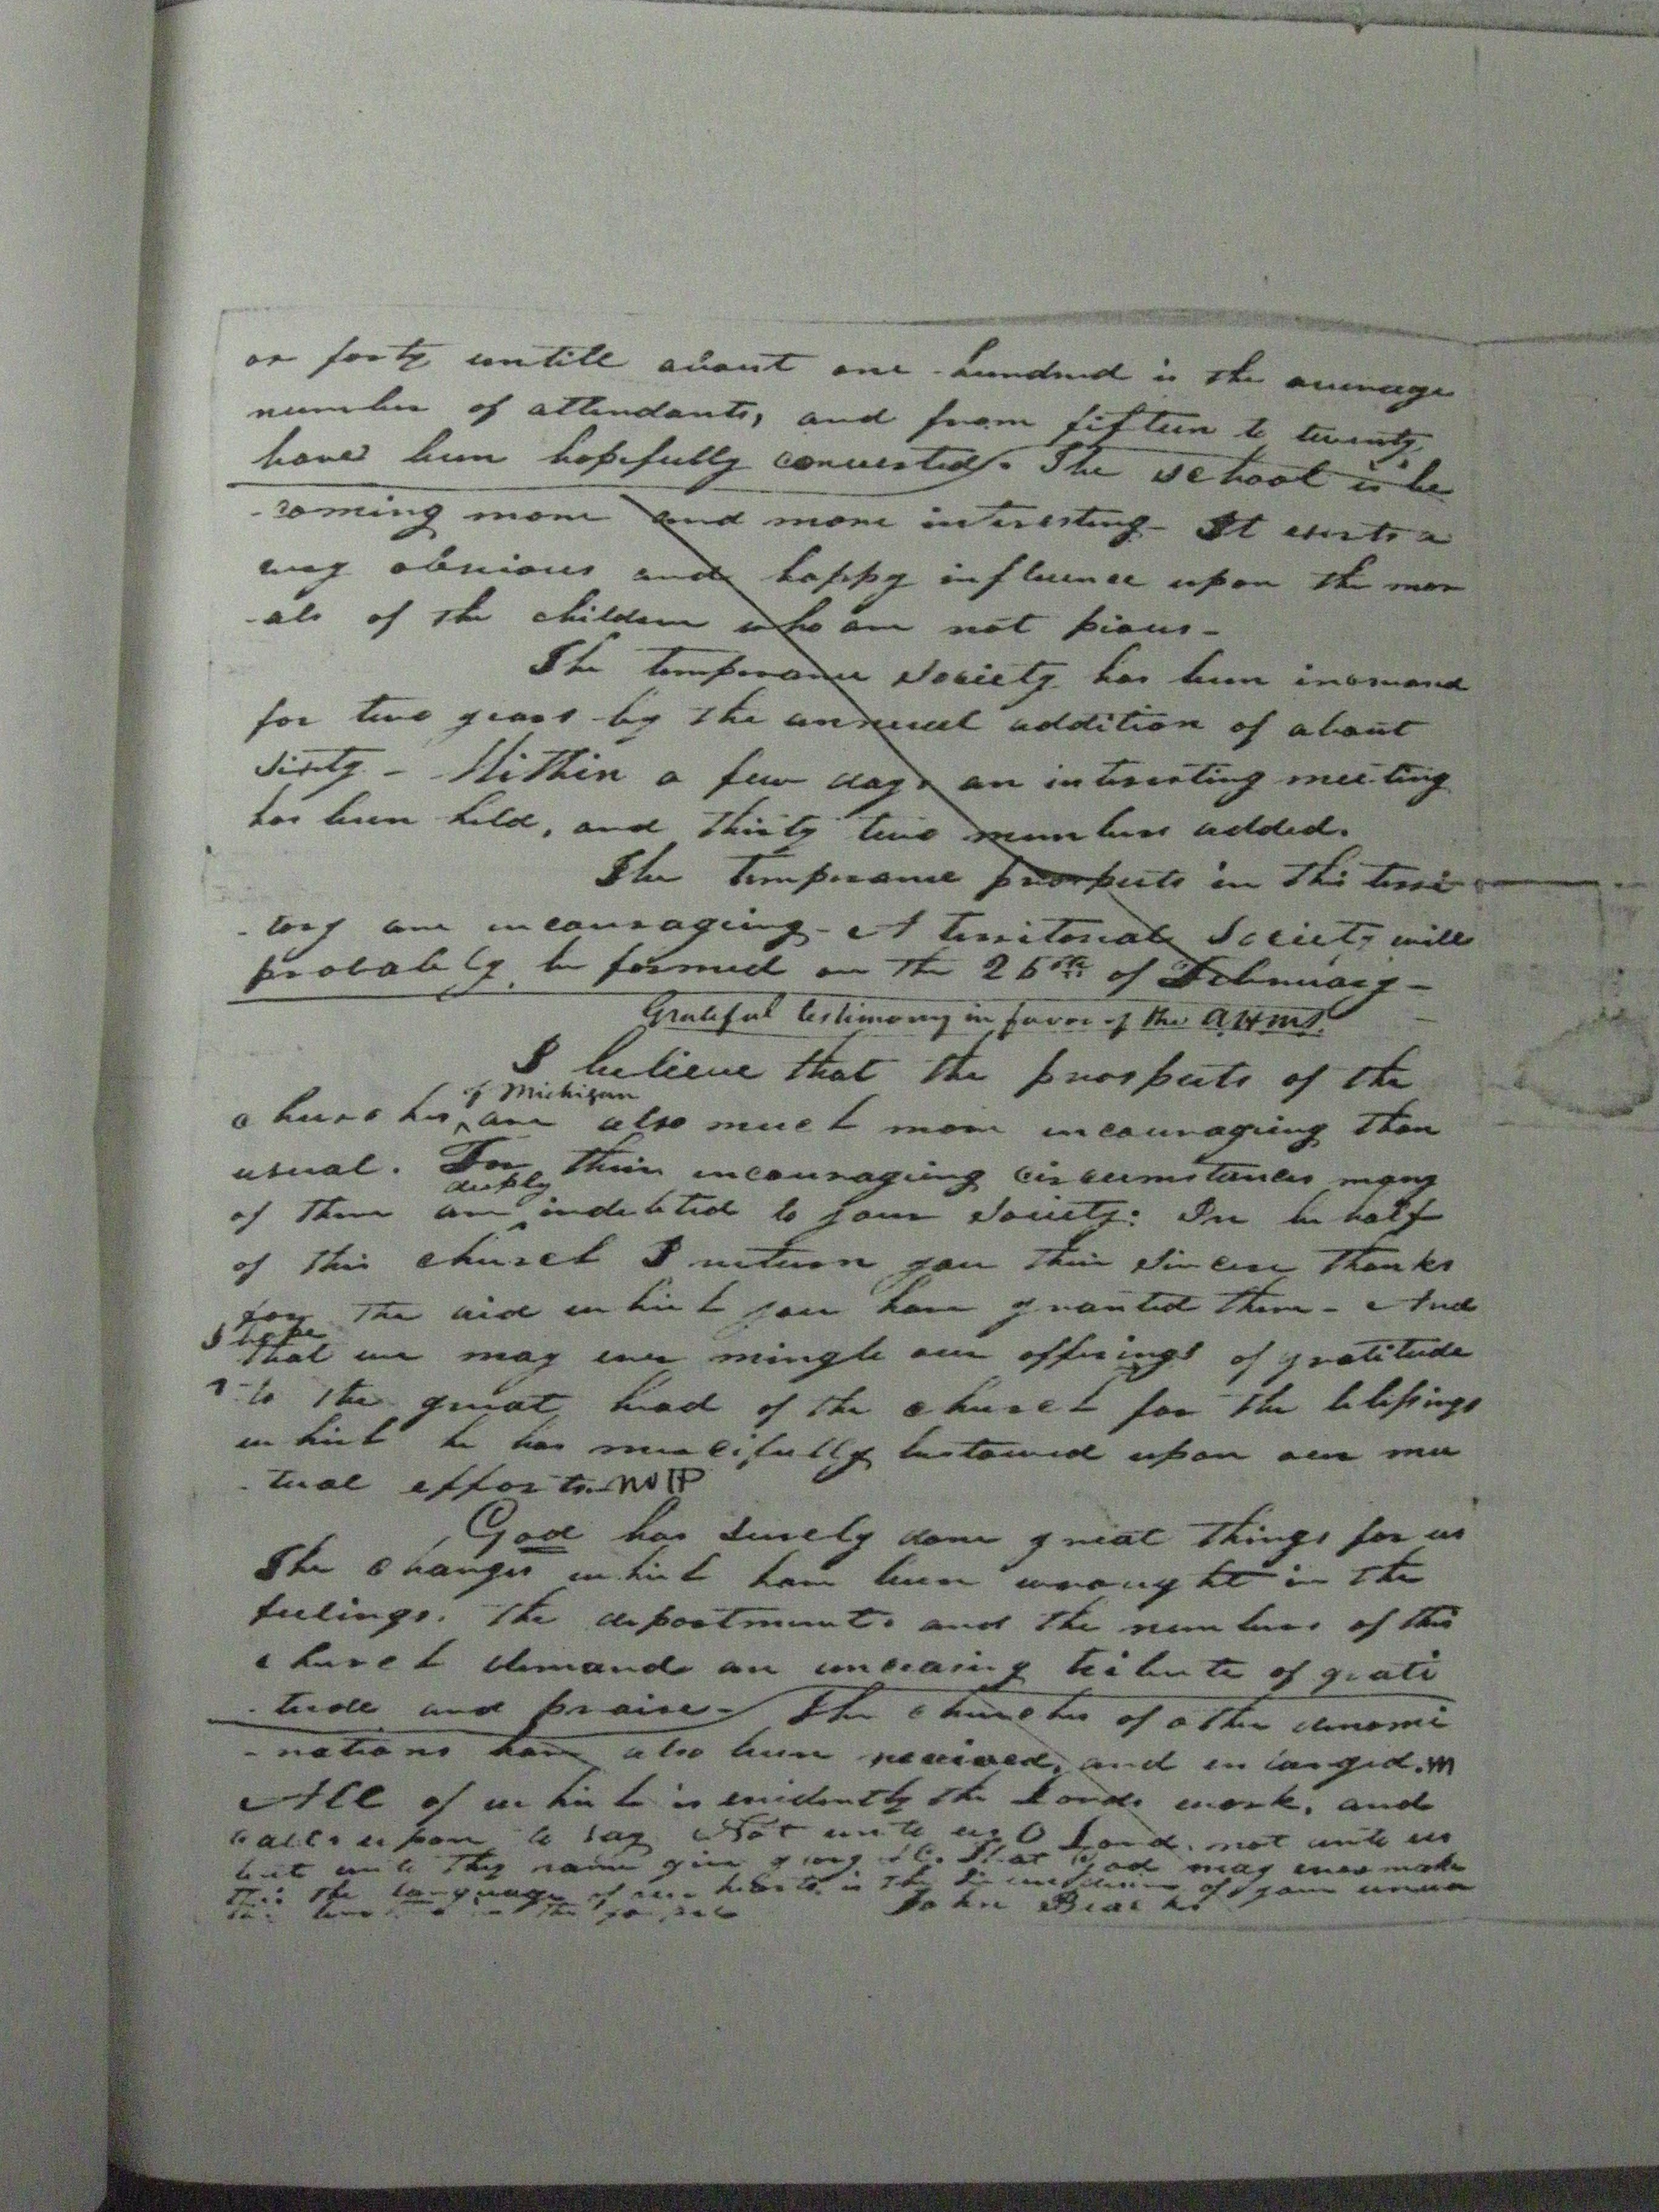 or forty untill about one hundred is the average
number of attendants, and from fifteen to twenty,
have been hopefully converted. The school is be
-coming more and more interesting - It exerts a
very obvious and happy influence upon the mor
-als of the children who are not pious -
The temperance society has been increased
for two years by the annual addition of about
sixty - Within a few days an interesting meeting
has been held, and thirty two members added.
The temperance prospects in this terri
-tory are encouraging - A territorial Society will
probably be formed on the 26th of February -
Grateful testimony in favor of the A.H.M.S.
I believe that the prospects of the
of Michigan
churches are also much more encouraging than
usual. For their encouraging circumstances many
deeply
of them are indebted to your society: In behalf
of this church I return you their sincere thanks
for the aid which you have granted them - And
I hope
that we may ever mingle our offerings of gratitude
to the great head of the church for the blessings
which he has mercifully bestowed upon our mu
-tual efforts - no ¶
God has surely done great things for us
The changes which have been wrought in the
feelings. the deportment. and the numbers of this
church demands an unceasing tribute of grati
-tude and praise - The churches of other denomi
-nations have also been revived, and enlarged.
All of which is evidently the Lords work, and
calls upon to say Not unto us O Lord, not unto us
but unto thy name give glory &c. That God may ever make
this the language of our hearts is the of your unwor
John Beach